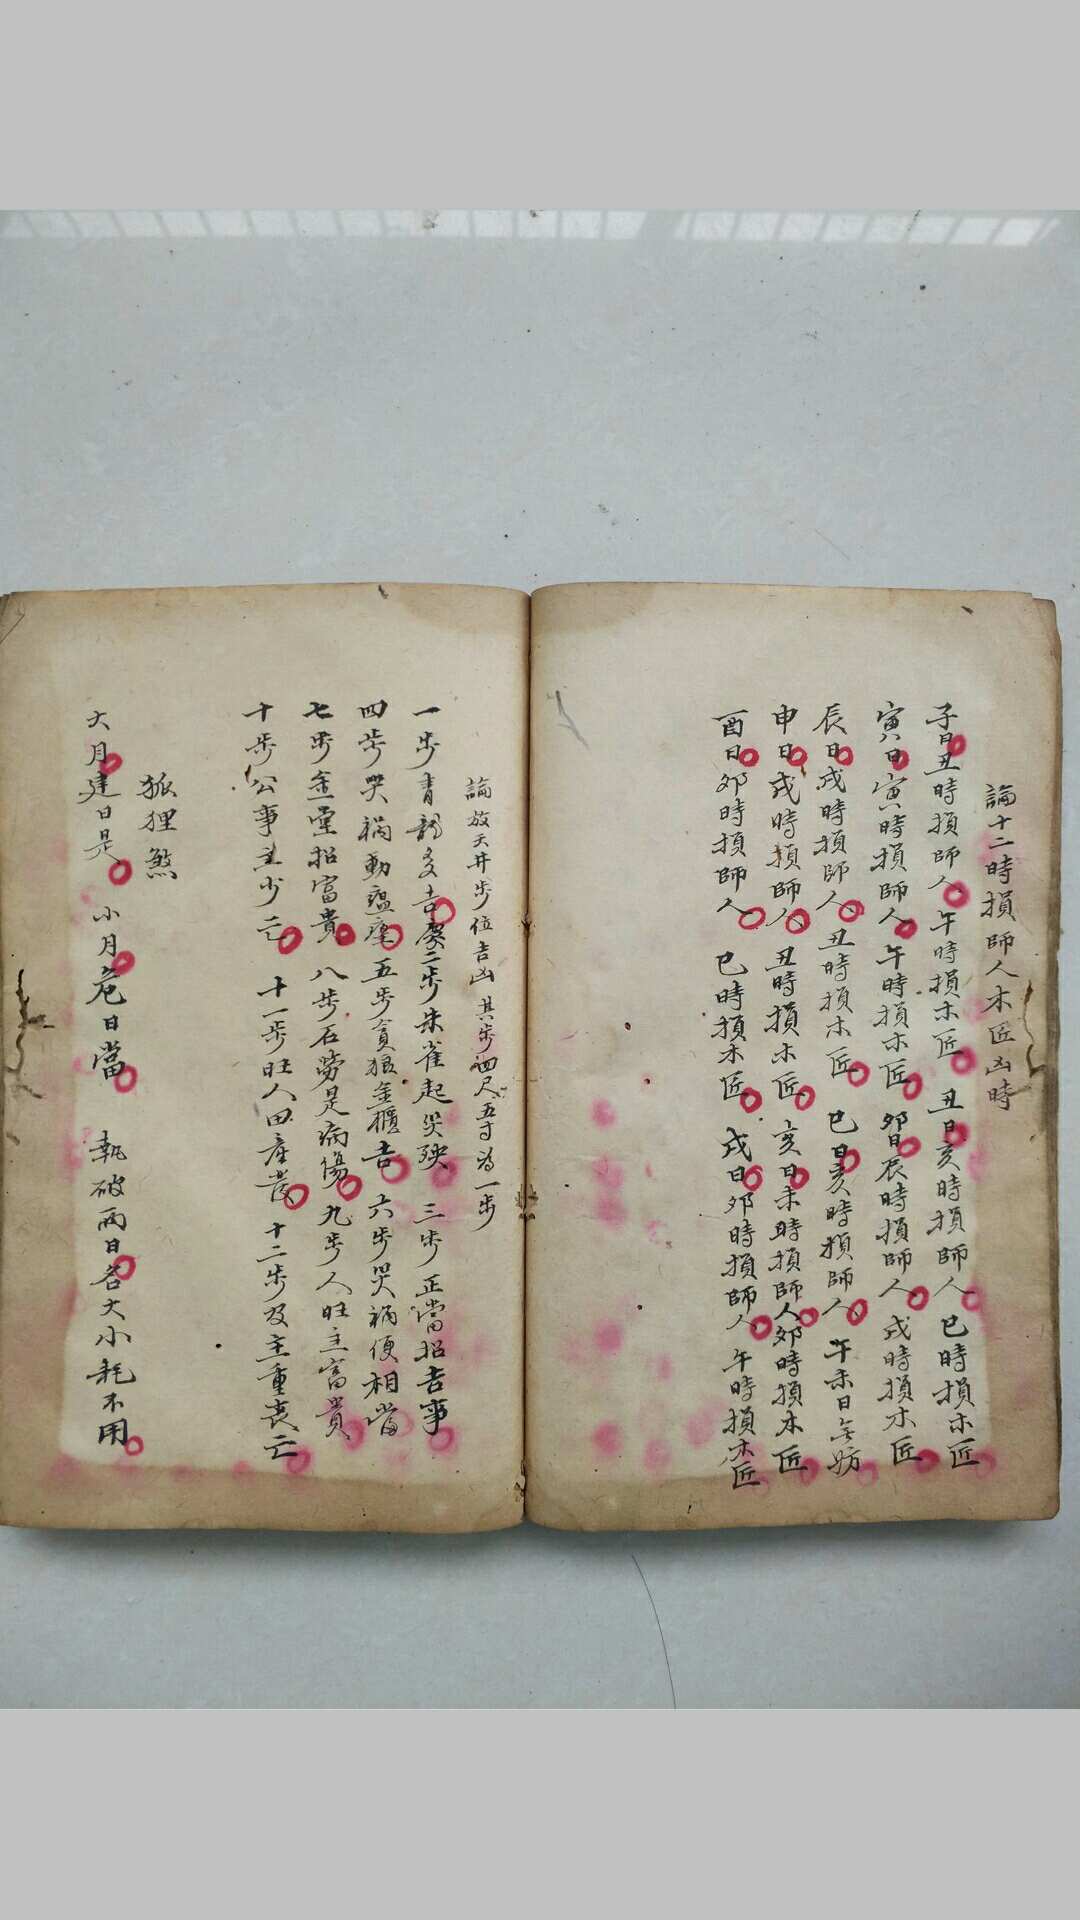 論十二時損師人木匠凶時
子日丑時損師人 午時損木匠 丑日亥時損師人 巳時損木匠
寅日寅時損師人 午時損木匠 卯日辰時損師人 戌時損木匠
辰日戌時損師人 丑時損木匠 巳日亥時損師人 午未日無妨
申日戌時損師人 丑時損木匠 亥日未時損師人卯時損木匠
酉日卯時損師人 巳時損木匠 戌日卯時損師人 午時損木匠
論放天井步位吉凶 其步四尺五寸為一步
一步青龍多吉慶二步朱雀起災殃 三步正當招吉事
四步哭禍動瘟瘟 五步貪狼金櫃吉 六步哭禍便相當
七步金 招富貴 八步石勞是病傷九步人旺主富貴
十步公事主少亡 十一步旺人田產發 十二步及主重喪亡
狐狸煞
大月建日是 小月危日當 執破兩日名大小耗不用